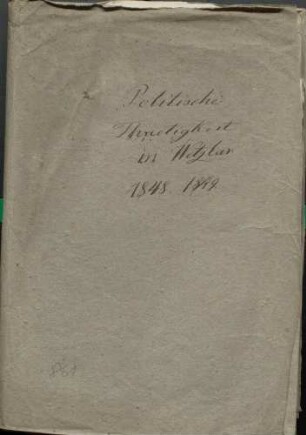 Politische
Thaetigkeit
in Wetzlar
1848. 1849